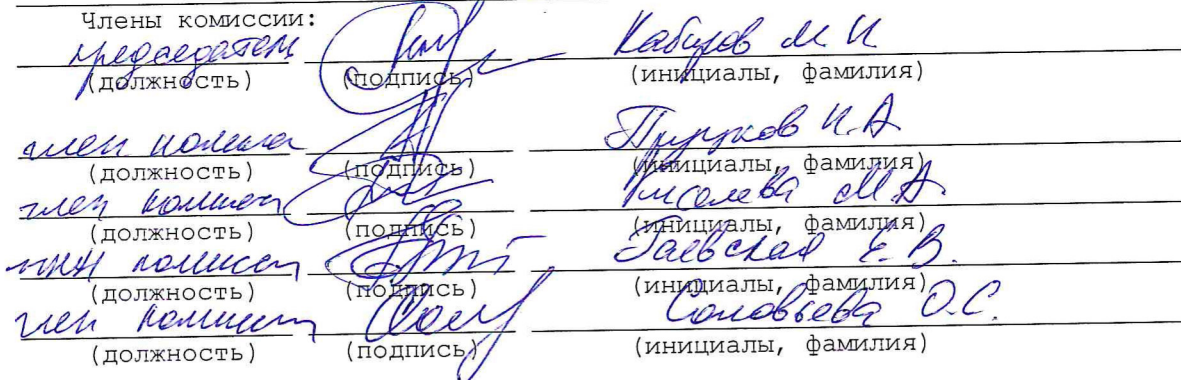 Члены комиссии:
председатель Кабиров М И
(должность) (подпись) (инициалы, фамилия)
член комисси И.А
(должность) (подпись) (инициалы, фамилия)
член комисси М.А.
(должность) (подпись) (инициалы, фамилия)
член комиссии Гаевская Е.В.
(должность) (подпись) (инициалы, фамилия)
член комиссии Соловьева О.С.
(должность) (подпись) (инициалы, фамилия)